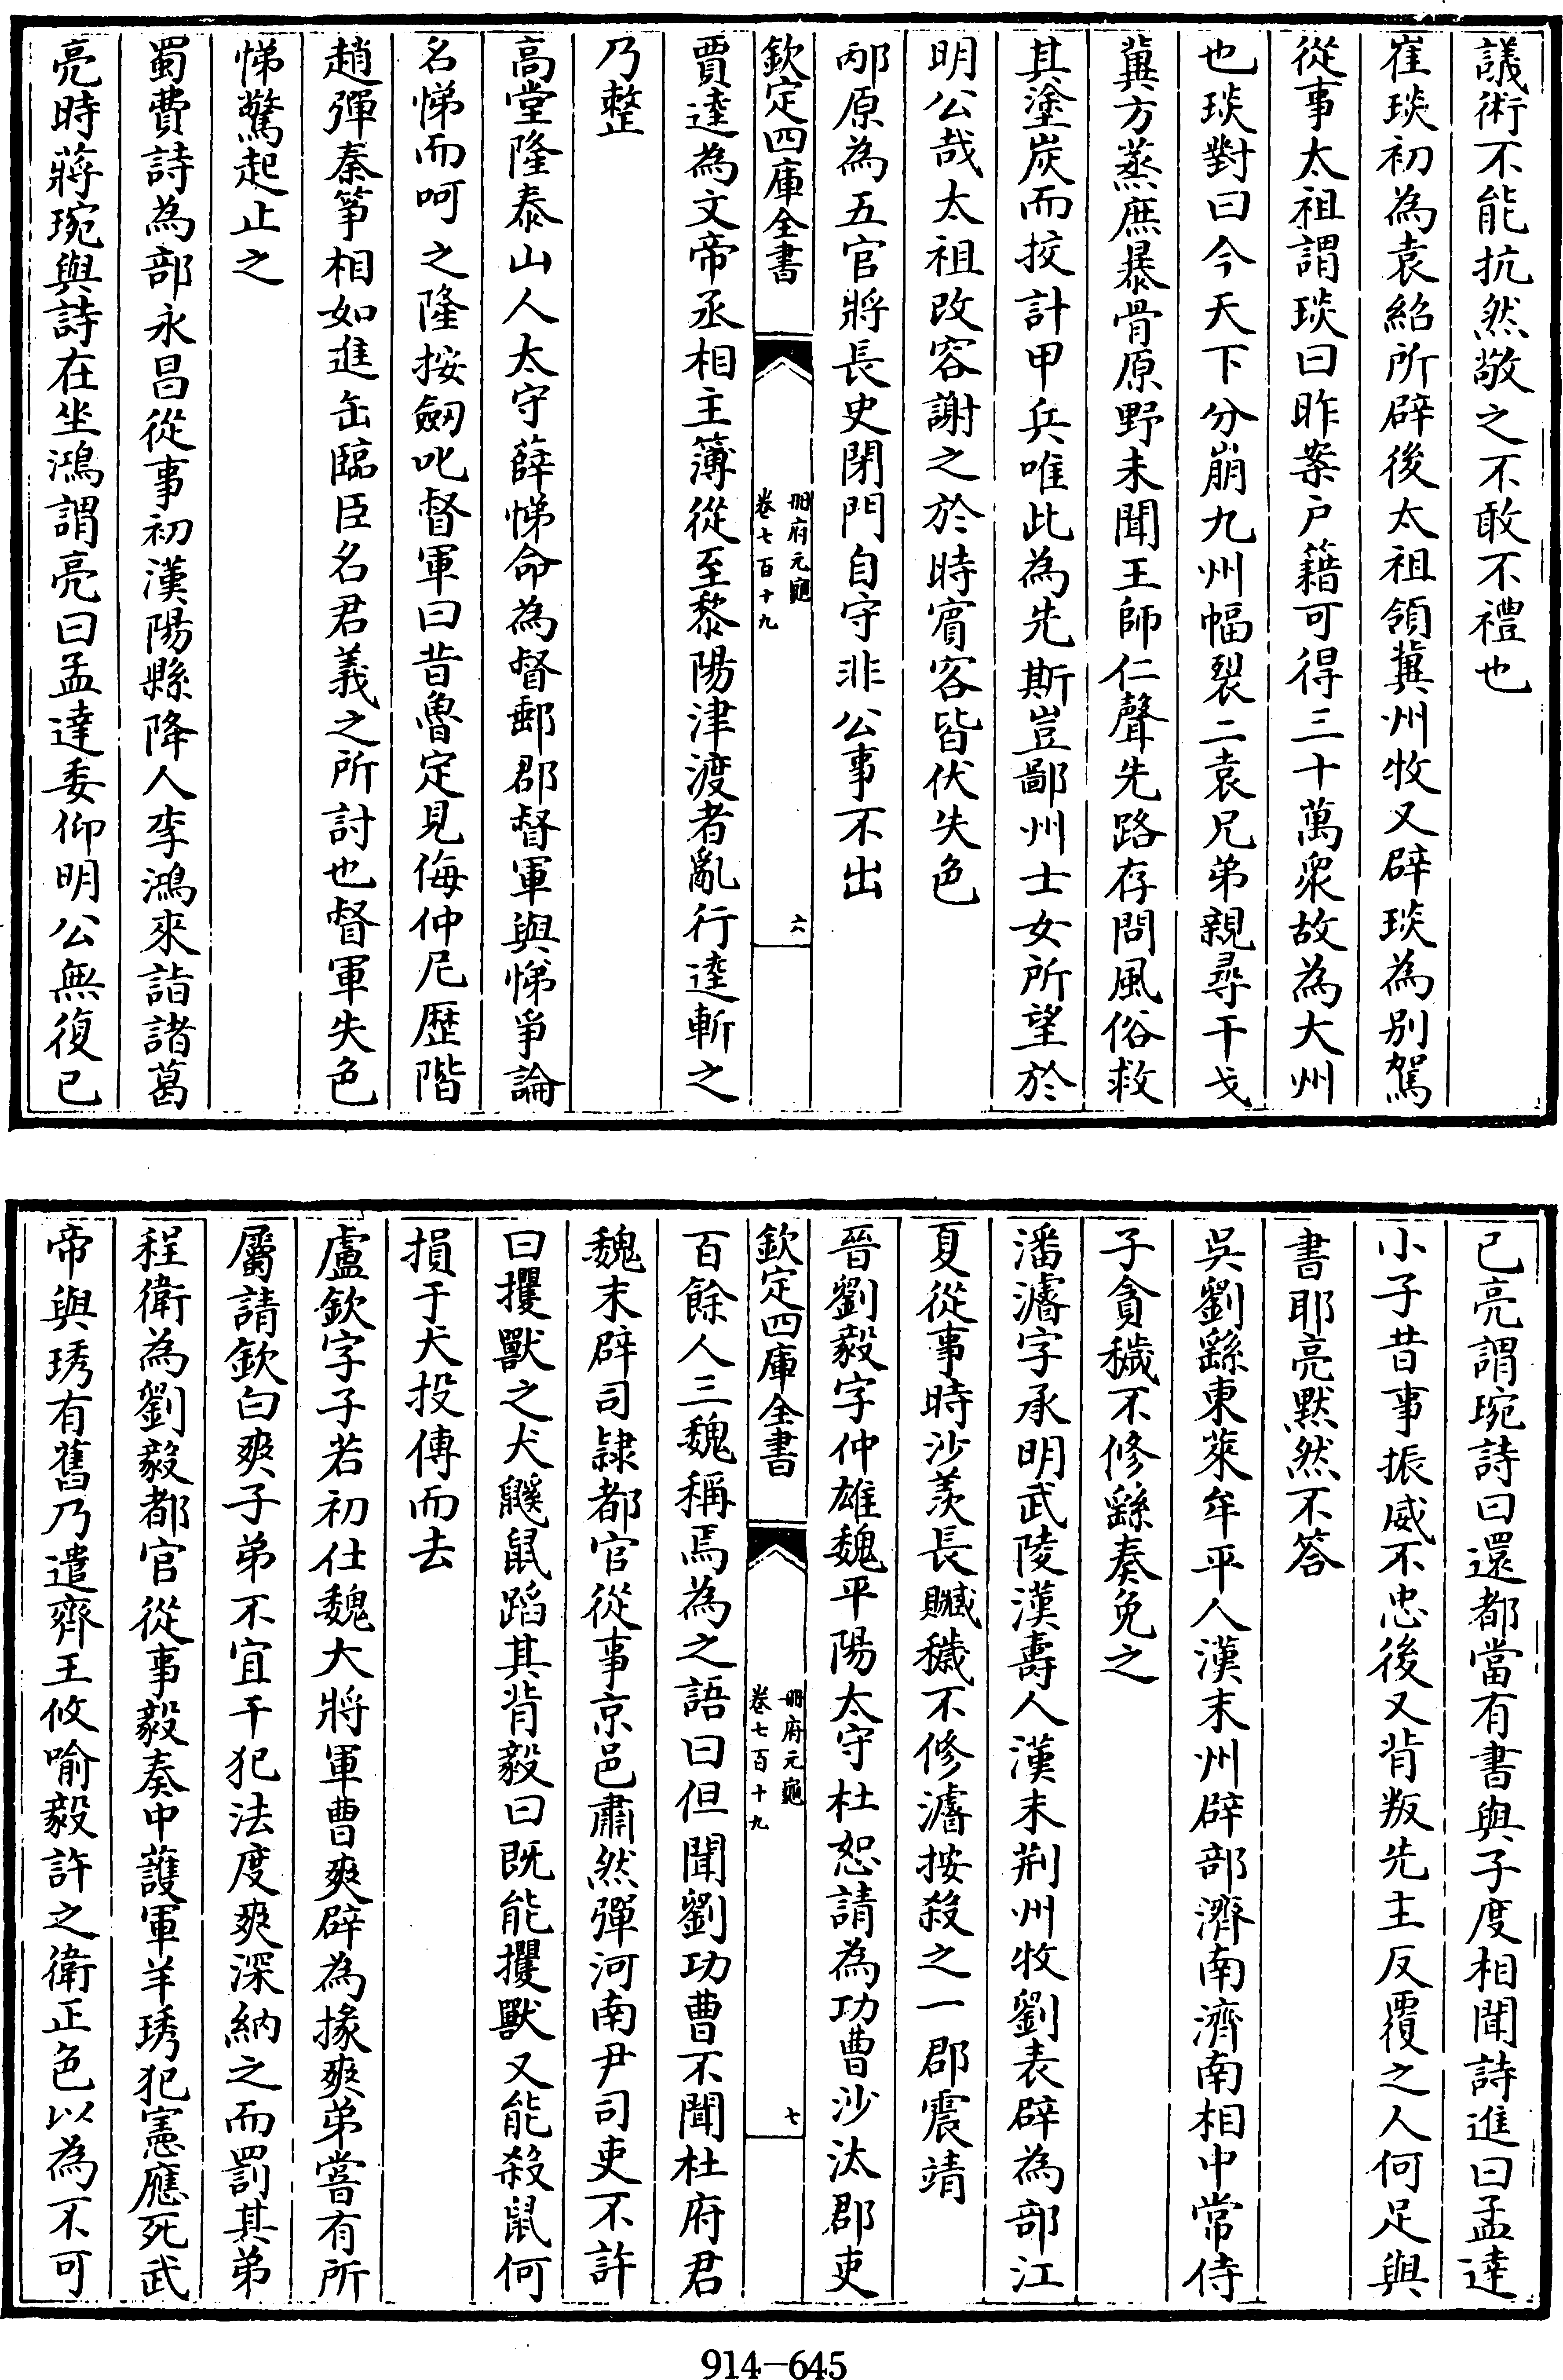 議術不能抗然敬之不敢不禮也
崔琰初為袁紹所辟後太祖領冀州牧又辟琰為别駕
從事太祖謂琰曰昨案户籍可得三十萬衆故為大州
也琰對曰今天下分崩九州幅裂二袁兄弟親尋干戈
冀方蒸庶暴骨原野未聞王師仁聲先路存問風俗救
其塗炭而挍計甲兵唯此為先斯豈鄙州士女所望於
明公哉太祖改容謝之於時賓客皆伏失色
邴原為五官將長史閉門自守非公事不出
欽定四庫全書
冊府元龜
卷七百十九
六
賈逵為文帝丞相主簿從至黎陽津渡者亂行逵斬之
乃整
高堂隆泰山人太守薛悌命為督郵郡督軍與悌爭論
名悌而呵之隆按劒叱督軍曰昔魯定見侮仲尼歴階
趙彈秦箏相如進缶臨臣名君義之所討也督軍失色
悌驚起止之
蜀費詩為部永昌從事初漢陽縣降人李鴻來詣諸葛
亮時蔣琬與詩在坐鴻謂亮曰孟達委仰明公無復已
已亮謂琬詩曰還都當有書與子度相聞詩進曰孟達
小子昔事振威不忠後又背叛先主反覆之人何足與
書耶亮黙然不答
吳劉繇東萊牟平人漢末州辟部濟南濟南相中常侍
子貪穢不修繇奏免之
潘濬字承明武陵漢壽人漢末荆州牧劉表辟為部江
夏從事時沙羡長贓穢不修濬按殺之一郡震靖
晉劉毅字仲雄魏平陽太守杜恕請為功曹沙汰郡吏
欽定四庫全書
冊府元龜
卷七百十九
七
百餘人三魏稱焉為之語曰但聞劉功曹不聞杜府君
魏末辟司隷都官從事京邑肅然彈河南尹司吏不許
曰攫獸之犬鼷鼠蹈其背毅曰既能攫獸又能殺鼠何
損于犬投傳而去
盧欽字子若初仕魏大將軍曹爽辟為掾爽弟嘗有所
屬請欽白爽子弟不宜干犯法度爽深納之而罰其弟
程衛為劉毅都官從事毅奏中護軍羊琇犯憲應死武
帝與琇有舊乃遣齊王攸喻毅許之衛正色以為不可
914-645